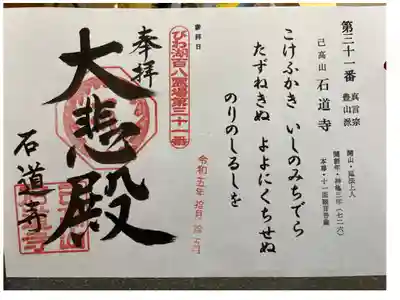 第三十一番
真言宗
豊山派
己高山 石道寺
開山・延法上人
開創年・神亀三年(七二六)
本尊・十一面観音菩薩
こけふかき いしのみちでら
たずねきぬ よよにくちせぬ
のりのしるしを
参拝日
令和五年 拾月 拾五日
びわ湖百八霊場第三十一番
奉拝
大悲殿
石道寺